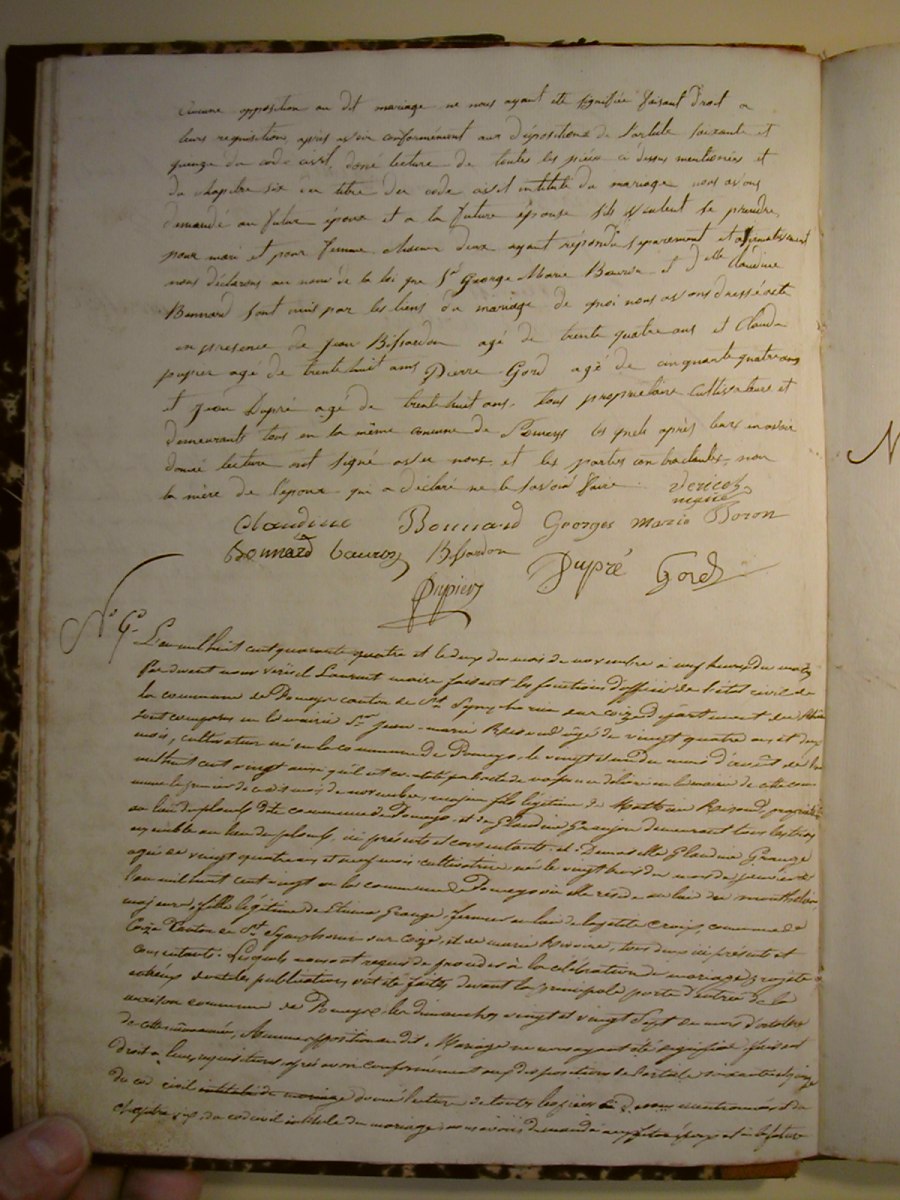 aucune opposition au dit mariage ne nous ayant été signifiée faisant Droit a
leurs requisition, après avoir conformément aux dépositions de l'article soixante et
quenze du code civil, doné lecture de toutes les pièces ci dessus mentionnées et
du chapitre six du titre du code civil intitulé du mariage nous avons
demandé au futur époux et a la future épouse s'ils veulent se prendre
pour mari et pour femme chacun deux ayant répondu séparement et afirmativement
nous déclarons au nom de la loi que Sr George Marie Bouron et Dlle Claudine
Bonnard sont unis par les liens du mariage de quoi nous avons dressé acte
en presence de jean Bissardon agé de trente quatre ans et Claude
pupier age de trente huit ans Pierre Gord agé de cinquante quatre ans
et Jean Dupré agé de trente huit ans, tous propriétaires cultivateurs et
demeurants tous en la même comune de Pomeys les quels après leurs en avoir
donné lecture ont signé avec nous et les parties contractantes, non
la mère de l'époux qui a déclaré ne le savoir faire
maire
Claudine Bonnard Georges Marie Boron
Bonnard Bissardon Dupré Gord
Pupier
N° 6
L'an mil huit cent quarante quatre et le deux du mois de novembre à heures du matin
Par devant nous Laurent maire faisant les fonctions d'officier de l'état civil de
la commune de Pomeys canton de St Symphorien sur coize département du Rhône
sont comparus en la mairie Sr Jean-marie agé de vingt quatre ans et deux
mois, cultivateur né en la commune de Pomeys le vingt du mois d'août de l'an
mil huit cent vingt ainsi qu'il est constaté par l'acte de naissance délivré en la mairie de cette com
mune le du mois de novembre, majeur fils légitime de Mathieu
au lieu de dite commune de Pomeys, et de Claudine Granjon demeurant tous les trois
ensemble au lieu de ici présents et consentants et Demoiselle Claudine Grange
agée de vingt quatre ans et mois cultivatrice née le vingt trois du mois de
l'an mil huit cent vingt en la commune de Pomeys où elle réside au lieu de
majeure, fille légitime de Grange fermier au lieu de la petite Croix, commune de
Coize Canton de St Symphorien sur coize, et de marie tous deux ici présents et
consentants. Lesquels nous ont requis de procéder à la célébration du mariage projeté
entreux dont les publications ont été faites devant la principale porte d'entrée de la
maison commune de Pomeys les dimanches vingt et vingt sept du mois d'octobre
de cette année, Aucune opposition au dit Mariage ne nous ayant été signifiée faisant
Droit a leurs requisitions, après avoir conformément aux dispositions de l'article soixante et quinze
du cod civil intitulé du mariage donné lecture de toutes les pièces ci dessus mentionnées et du
chapitre six du code civil intitulé du mariage, nous avons demandé au futur époux et à la future